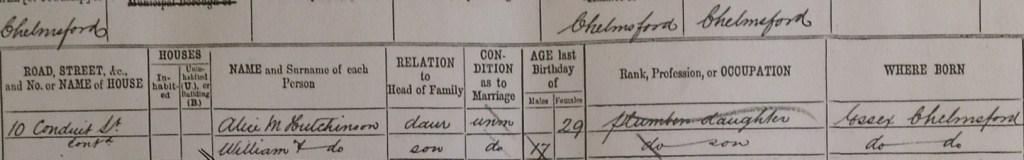 Municipal Borough of
Chelmsford Chelmsford Chelmsford
ROAD, STREET, &c., and No. or NAME of HOUSE
HOUSES
In-habit-ed
Unin-habited (U.), or Building (B.)
NAME and Surname of each Person
RELATION to Head of Family
CON-DITION as to Marriage
AGE last Birthday of
Males Females
Rank, Profession, or OCCUPATION
WHERE BORN
10 Conduit St Alice M Hutchinson daur unm 29 plumber daughter Essex Chelmsford
cont William do son do 17 do son do do